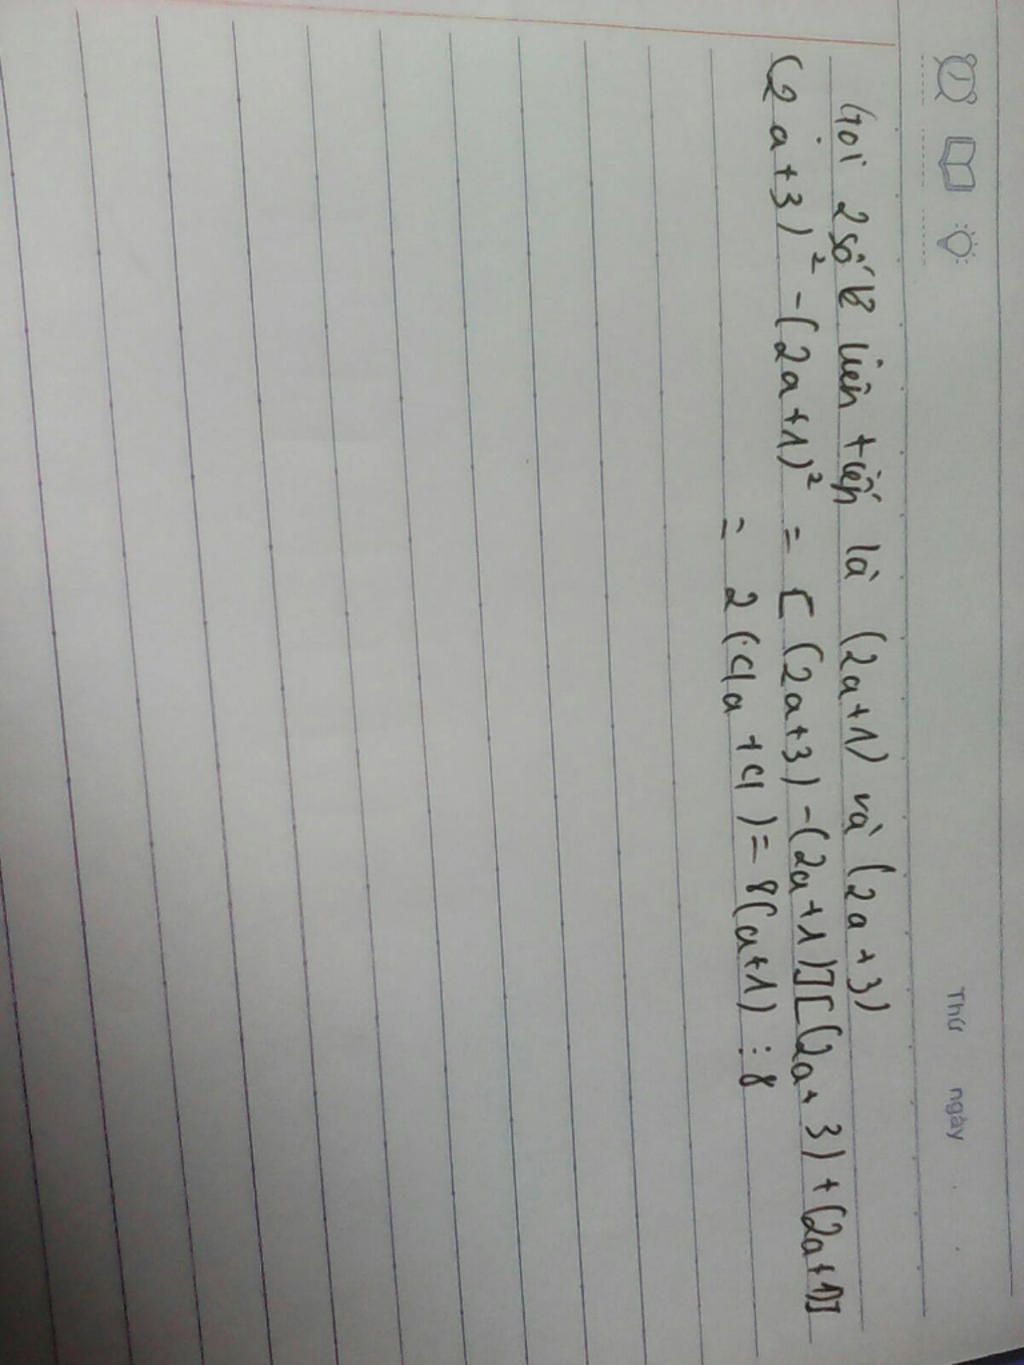 Thứ ngày
Gọi 2 số lẻ liên tiếp là (2a+1) và (2a+3)
(2a+3)² - (2a+1)² = [(2a+3) - (2a+1)][(2a+3) + (2a+1)]
= 2(4a+4) = 8(a+1) ⋮ 8